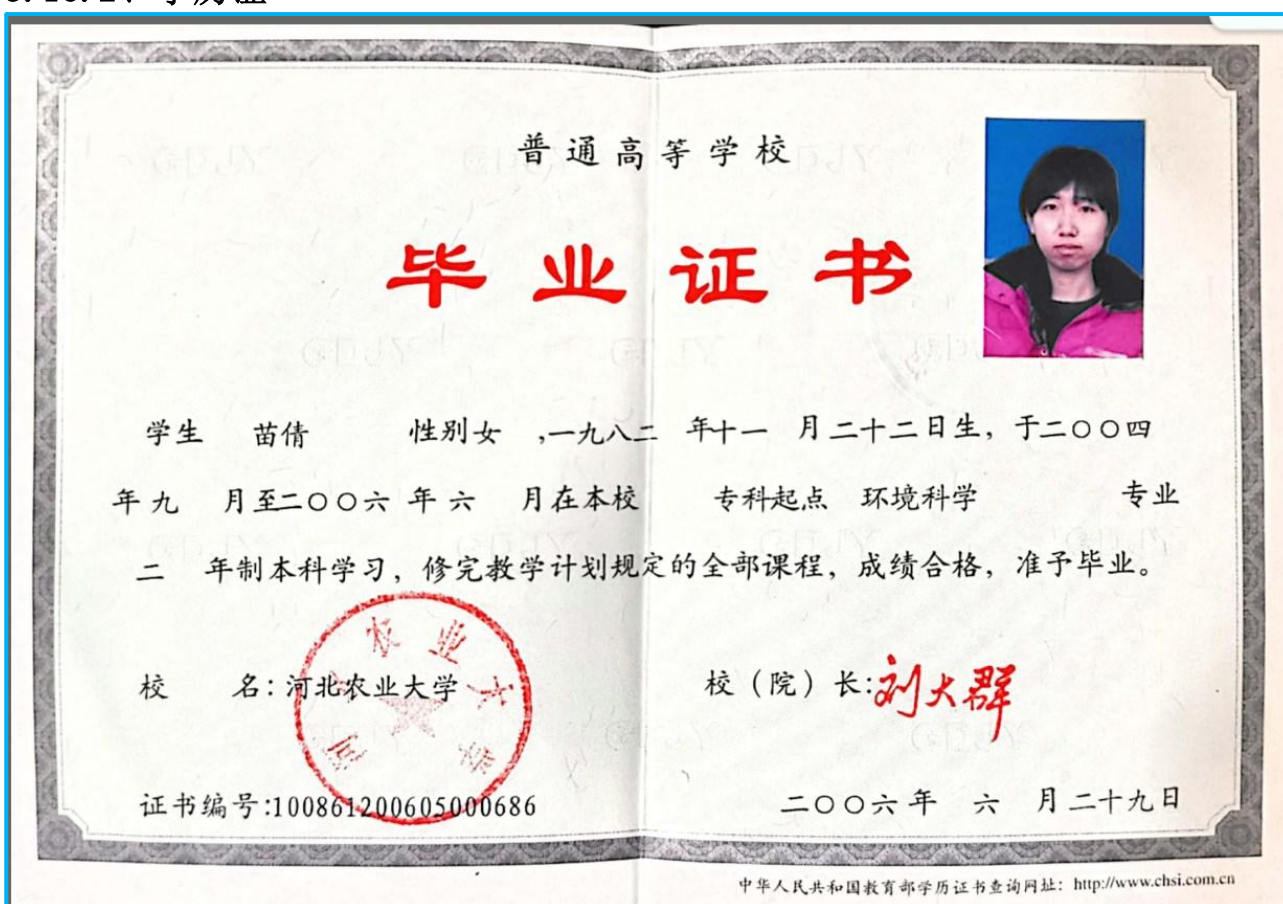 普通高等学校
毕业证书
学生 苗倩 性别女 ,一九八二 年十一 月二十二日生, 于二〇〇四
年九 月至二〇〇六 年六 月在本校 专科起点 环境科学 专业
二 年制本科学习, 修完教学计划规定的全部课程, 成绩合格, 准予毕业。
河北农业大学
校 名: 河北农业大学 校(院)长: 刘大群
证书编号:100861200605000686 二〇〇六年 六 月二十九日
中华人民共和国教育部学历证书查询网址: http://www.chsi.com.cn